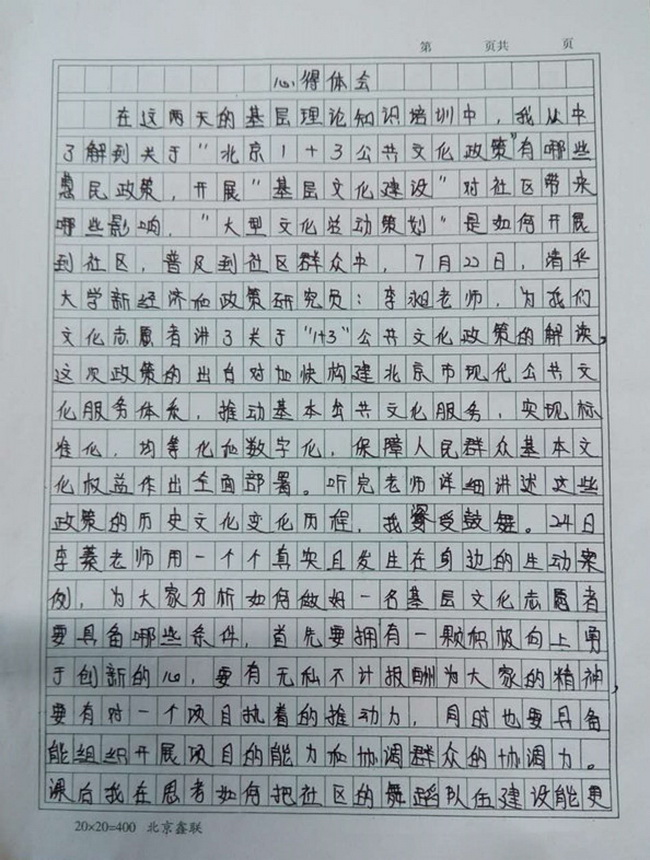 第 页共 页
心得体会
在这两天的基层理论知识培训中，我从中
了解到关于“北京1+3公共文化政策”有哪些
惠民政策，开展“基层文化建设”对社区带来
哪些影响，“大型文化活动策划”是如何开展
到社区，普及到社区群众中，7月22日，清华
大学新经济和政策研究员：李昶老师，为我们
文化志愿者讲了关于“1+3”公共文化政策的解读，
这次政策的出台对加快构建北京市现代公共文
化服务体系，推动基本公共文化服务，实现标
准化，均等化和数字化，保障人民群众基本文
化权益作出全面部署。听完老师详细讲述这些
政策的历史文化变化历程，我深受鼓舞。24日
李蓁老师用一个个真实且发生在身边的生动案
例，为大家分析如何做好一名基层文化志愿者
要具备哪些条件，首先要拥有一颗积极向上勇
于创新的心，要有无私不计报酬为大家的精神，
要有对一个项目执着的推动力，同时也要具备
能组织开展项目的能力和协调群众的协调力。
课后我在思考如何把社区的舞蹈队伍建设能更
20×20=400 北京鑫联